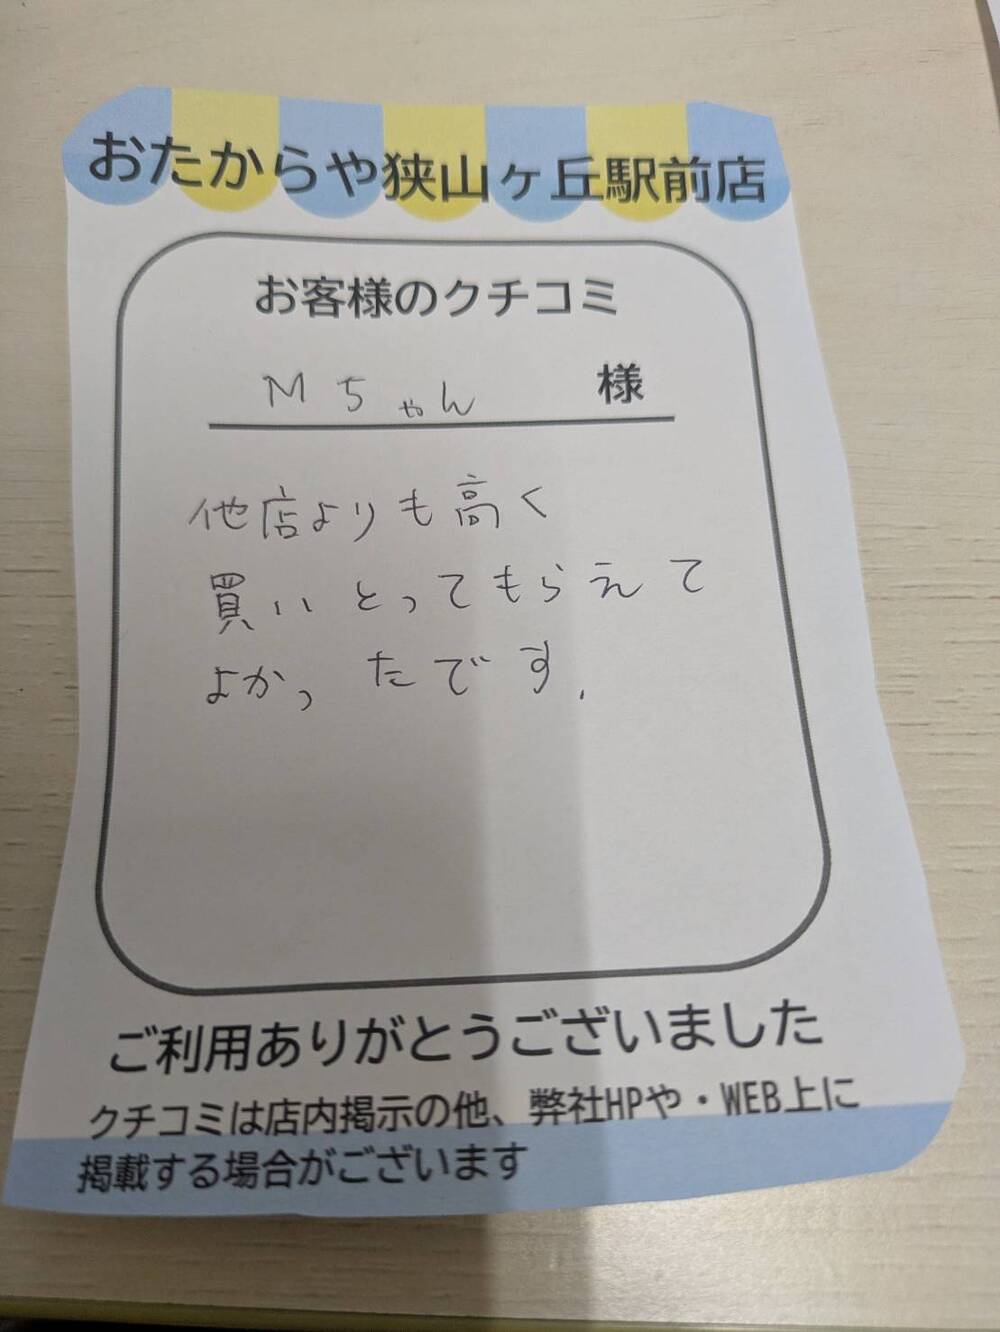 おたからや狭山ヶ丘駅前店
お客様のクチコミ
Mちゃん 様
他店よりも高く
買いとってもらえて
よかったです.
ご利用ありがとうございました
クチコミは店内掲示の他、弊社HPや・WEB上に
掲載する場合がございます